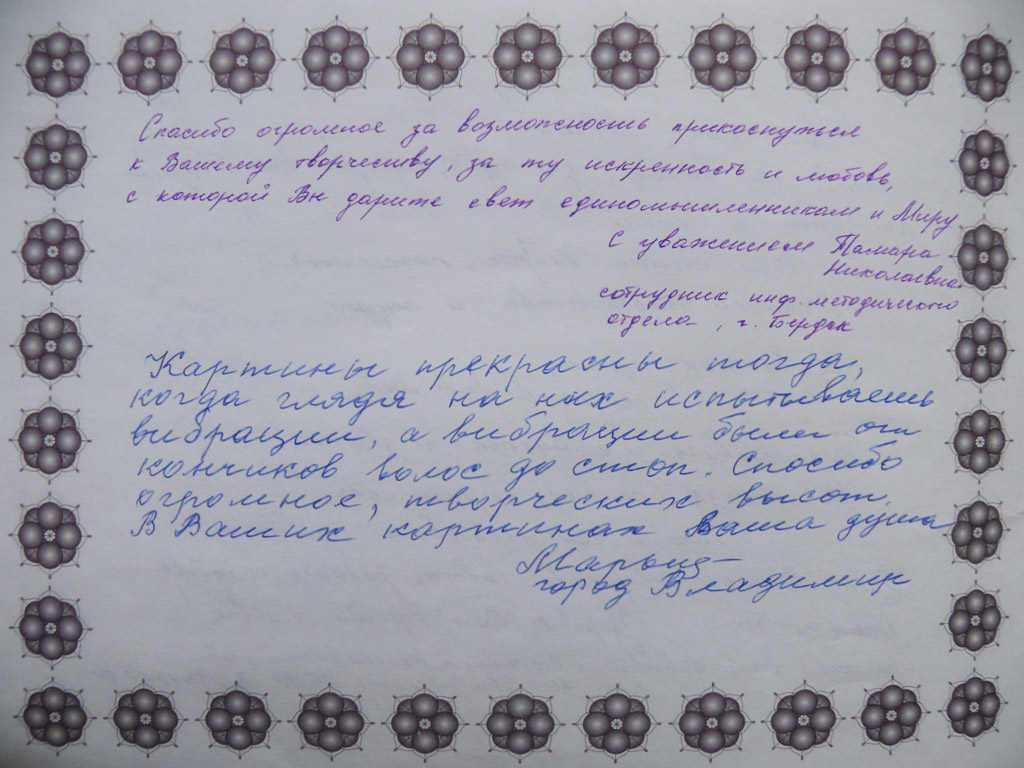 Спасибо огромное за возможность прикоснуться
к Вашему творчеству, за ту искренность и любовь,
с которой Вы дарите свет единомышленникам и Миру
С уважением Тамара
Николаевна
сотрудник инф. методического
отдела, г. Бердск
Картины прекрасны тогда,
когда глядя на них испытываешь
вибрации, а вибрации были от
кончиков волос до стоп. Спасибо
огромное, творческих высот.
В Ваших картинах Ваша душа
город Владимир